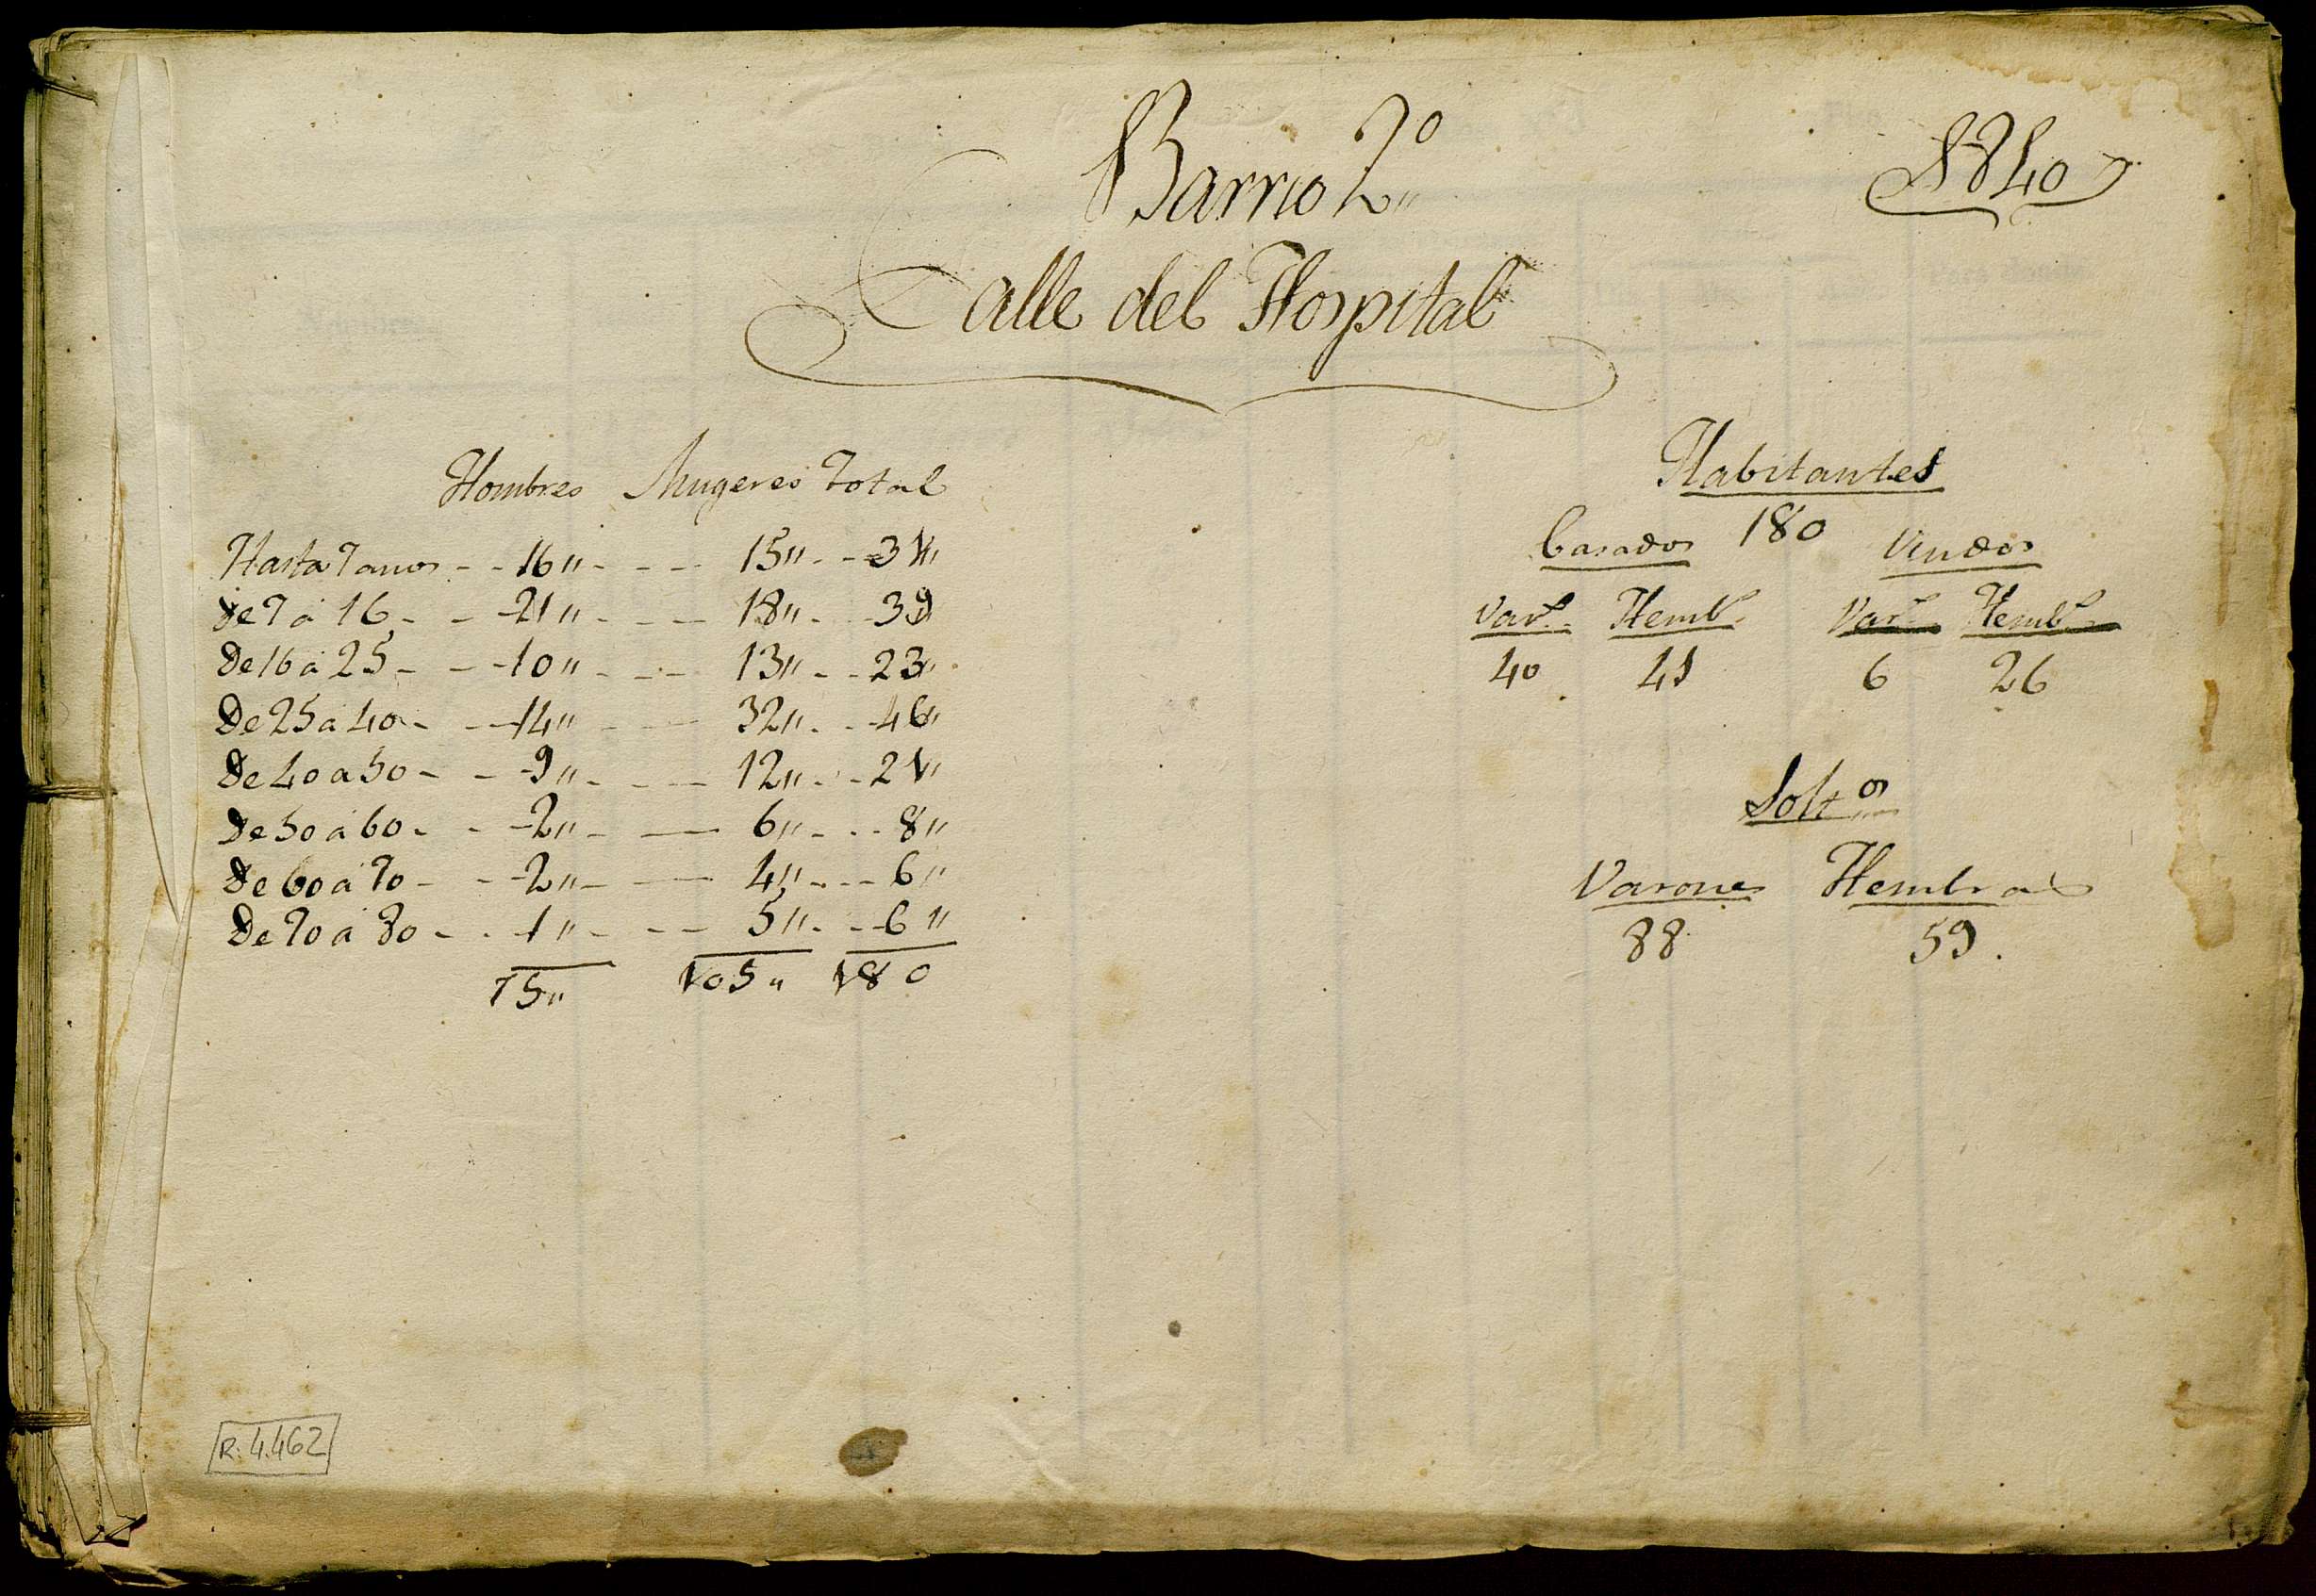 1840
Barrio 2º
Calle del Hospital
Hombres Mugeres Total
Hasta 7 anos - - 16 " - - - - 15 " - - 31 "
De 7 a 16 - - - 21 " - - - - 18 " - - 39
De 16 a 25 - - - 10 " - - - - 13 " - - 23 "
De 25 a 40 - - - 14 " - - - - 32 " - - 46 "
De 40 a 50 - - - 9 " - - - - 12 " - - 21 "
De 50 a 60 - - - 2 " - - - 6 " - - - 8 "
De 60 a 70 - - - 2 " - - - 4 " - - - 6 "
De 70 a 80 - - - 1 " - - - 5 " - - - 6 "
75 " 105 " 180
Habitantes
Casados 180 Viudos
Var.s Hemb.s Var.s Hemb.s
40 41 6 26
Solt.os
Varones Hembras
88 59.
R. 4.462